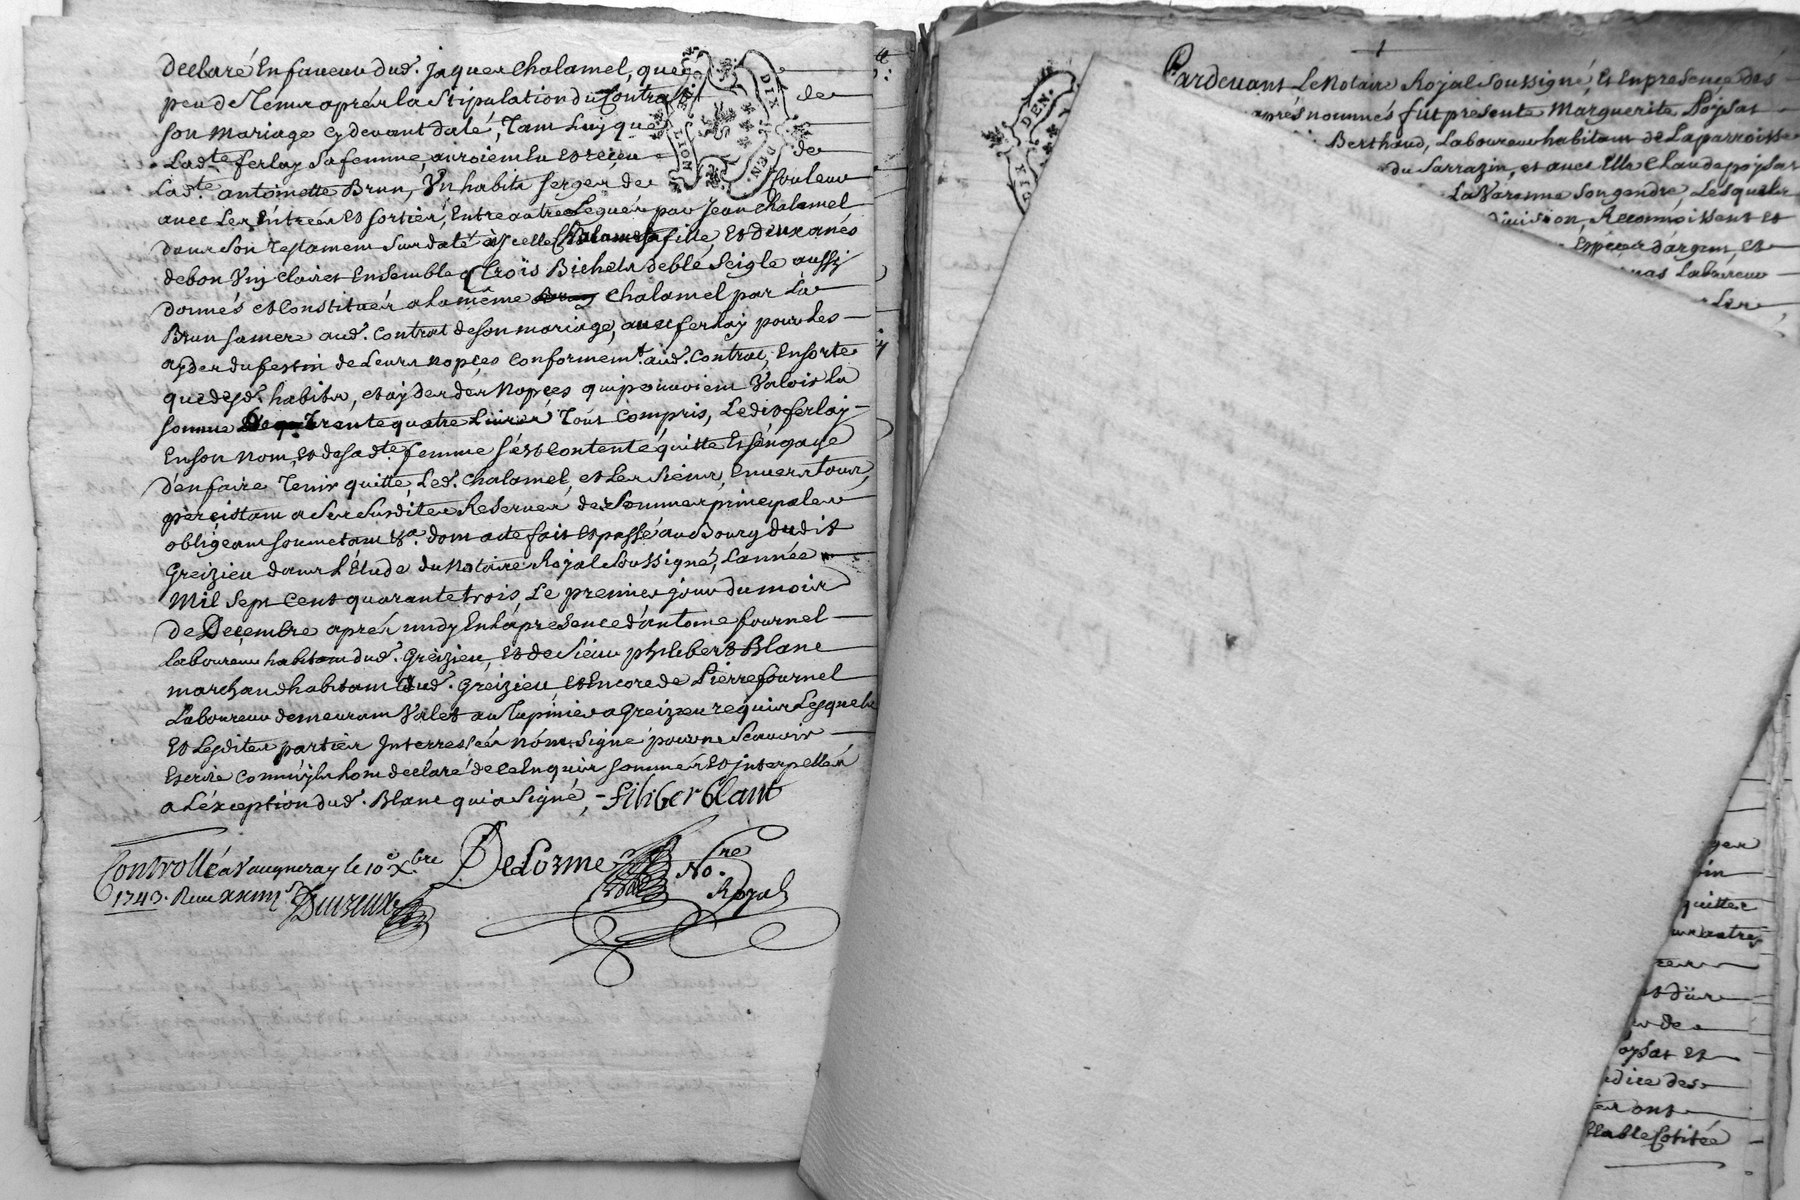 declaré En faveur dud. Jaques Chalamel, que
peu de Tems aprés la Stipulation du Contrat de
son mariage cy devant daté, Tant Luy que
Ladte ferlay Sa femme, auroient Eu et reçeu de
Ladte antoinette Brun, Un habit serge de couleur
avec Les Entrées et sorties, Entre autre Legués par Jean Chalamel
dans Son Testament Surdaté à Icelle Chalamel sa fille, Et deux anés
de bon Vin Clairet Ensemble Trois Bichets de blé Seigle aussy
donnés et Constitués a la même Chalamel par La
Brun sa mere aud. Contrat de son mariage, avec ferlay pour Les
ayder du festin de Leurs nopçes Conformemt. aud. Contrat, En sorte
que desd. habits, et ayder des Nopçes qui pouvoient Valoir La
somme De Trente quatre Livres Tout Compris, Ledit ferlay
En son nom, et de sadte femme s'est Contenté quitte Et s'engage
d'en faire Tenir quitte Led. Chalamel, et Les Siens, Envers tous,
perçistant a Ses Susdites Reserves des Sommes principales
obligeant soumetant &a. dont acte fait Et passé au Bourg dudit
Greizieu dans L'Etude du Notaire Royal Soussigné, L'année
Mil Sept Cent quarante trois, Le premier jour du mois
de Deçembre aprés midy En la presence d'antoine fournel
laboureur habitant dud. Greizieu, Et de Sieur philibert Blanc
marchand habitant dud. Greizieu, et Encore de Pierre fournel
Laboureur demeurant Valet au Tupinier a Greizieu requis Lesquels
Et Lesdites parties Interressées n'ont Signé pour ne Scavoir
Escrire Comm'ils hont declaré de ce Enquis sommés Et interpellés
a L'éxception dud. Blanc qui a Signé, - filiber blanc
Controllé a Vaugneray le 10e Xbre DeLorme No.re
1743. Royal
DIX DEN.
LION
Pardevant Le Notaire Royal Soussigné, Et En presençe des
aprés nommés fut presente Marguerite Poysat
Berthaud, Laboureur habitant de La parroisse
du Sarrazin, et avec Elle Claude poysat
La Varenne Son gendre, Lesquels
division, Reconnoissent et
Espéces d'argent, et
Laboureur
Les
DIX DEN.
quitte
autres
et dür
de
oysat Et
ont
Cotitée